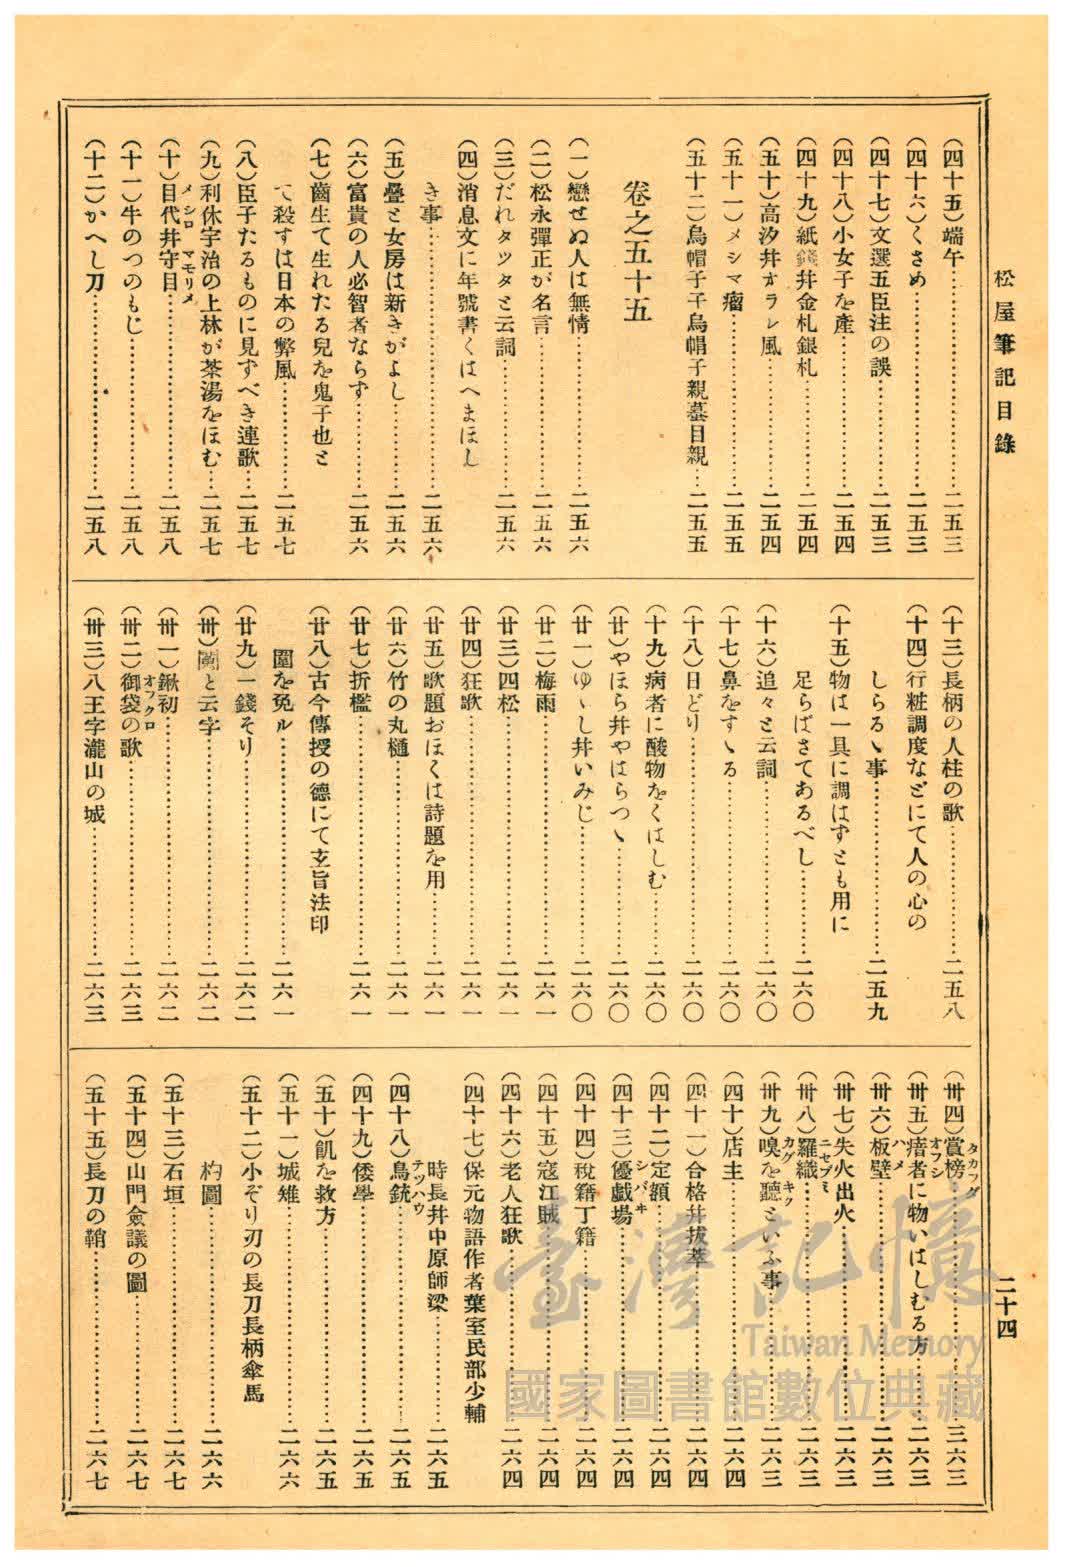 松屋筆記目錄
二十四
(四十五)端午………二五三
(四十六)くさめ………二五三
(四十七)文選五臣注の誤………二五三
(四十八)小女子を產………二五四
(四十九)紙錢幷金札銀札………二五四
(五十)高汐幷オラレ風………二五四
(五十一)メシマ瘤………二五五
(五十二)烏帽子子烏帽子親墓目親…二五五
卷之五十五
(一)戀せぬ人は無情………二五六
(二)松永彈正が名言………二五六
(三)だれタツタと云詞………二五六
(四)消息文に年號書くはへまほし
き事………二五六
(五)疊と女房は新きがよし………二五六
(六)富貴の人必智者ならず………二五六
(七)齒生て生れたる兒を鬼子也と
て殺すは日本の弊風………二五七
(八)臣子たるものに見すべき連歌…二五七
(九)利休宇治の上林が茶湯をほむ…二五七
(十)目代幷守目………二五八
メシロ マモリメ
(十一)牛のつのもじ………二五八
(十二)かへし刀………二五八
(十三)長柄の人柱の歌………二五八
(十四)行粧調度などにて人の心の
しらるゝ事………二五九
(十五)物は一具に調はずとも用に
足らばさてあるべし………二六〇
(十六)追々と云詞………二六〇
(十七)鼻をすゝる………二六〇
(十八)日どり………二六〇
(十九)病者に酸物をくはしむ………二六〇
(廿)やほら幷やはらつゝ………二六〇
(廿一)ゆゝし幷いみじ………二六〇
(廿二)梅雨………二六一
(廿三)四松………二六一
(廿四)狂歌………二六一
(廿五)歌題おほくは詩題を用………二六一
(廿六)竹の丸樋………二六一
(廿七)折檻………二六一
(廿八)古今傳授の德にて玄旨法印
圍を免ル………二六一
(廿九)一錢そり………二六二
(卅)と云字………二六二
(卅一)鍬初………二六二
(卅二)御袋の歌………二六三
オフクロ
(卅三)八王字瀧山の城………二六三
(卅四)賞榜………二六三
タカフダ
(卅五)瘖者に物いはしむる方………二六三
オフシ
(卅六)板壁………二六三
ハメ
(卅七)失火出火………二六三
(卅八)羅織………二六三
ニセブミ
(卅九)嗅を聽といふ事………二六三
カグ キク
(四十)店主………二六四
(四十一)合格幷拔萃………二六四
(四十二)定額………二六四
(四十三)優戲場………二六四
シバヰ
(四十四)稅籍丁籍………二六四
(四十五)寇江賊………二六四
(四十六)老人狂歌………二六四
(四十七)保元物語作者葉室民部少輔
時長幷中原師梁………二六五
(四十八)鳥銃………二六五
テツハウ
(四十九)倭學………二六五
(五十)飢を救方………二六五
(五十一)城雉………二六六
(五十二)小ぞり刃の長刀長柄傘馬
杓圖………二六六
(五十三)石垣………二六七
(五十四)山門僉議の圖………二六七
(五十五)長刀の鞘………二六七
臺灣記憶
Taiwan Memory
國家圖書館數位典藏